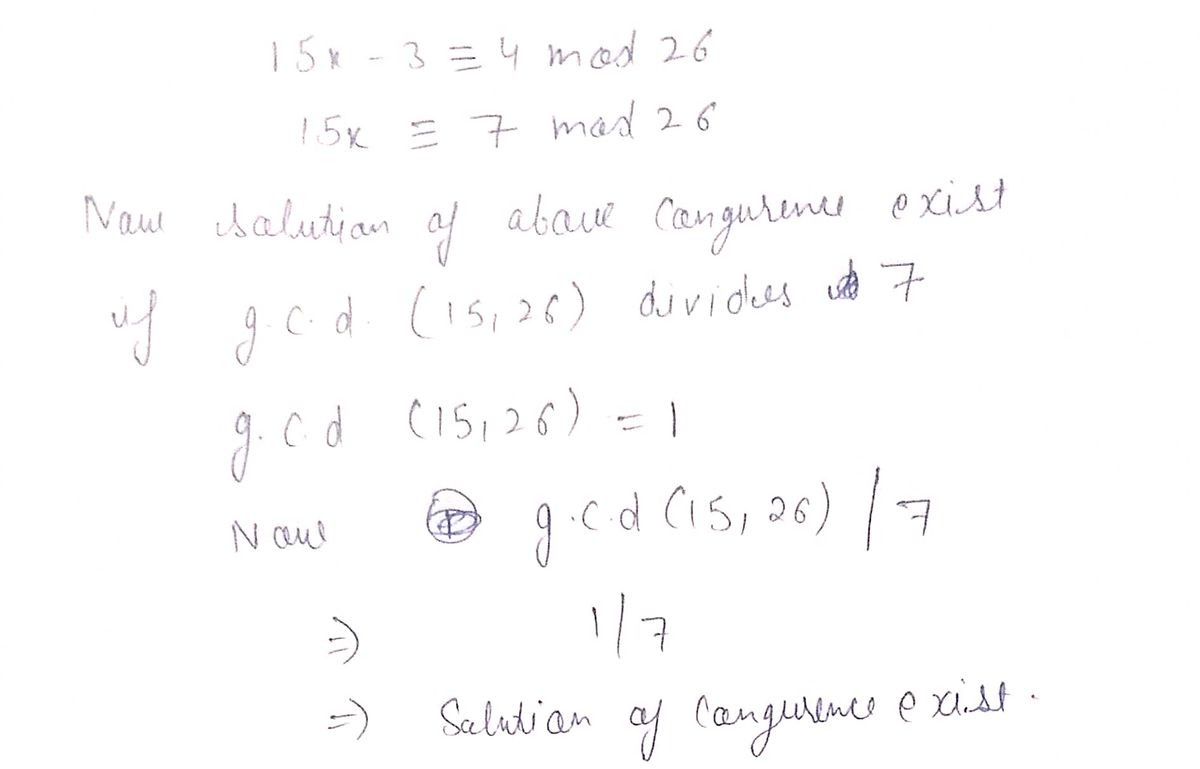 15x - 3 ≡ 4 mod 26
15x ≡ 7 mod 26
Now solution of above Congurence exist
if g.c.d. (15, 26) divides 7
g.c.d (15, 26) = 1
Now g.c.d (15, 26) / 7
⇒ 1/7
⇒ Solution of Congurence exist.